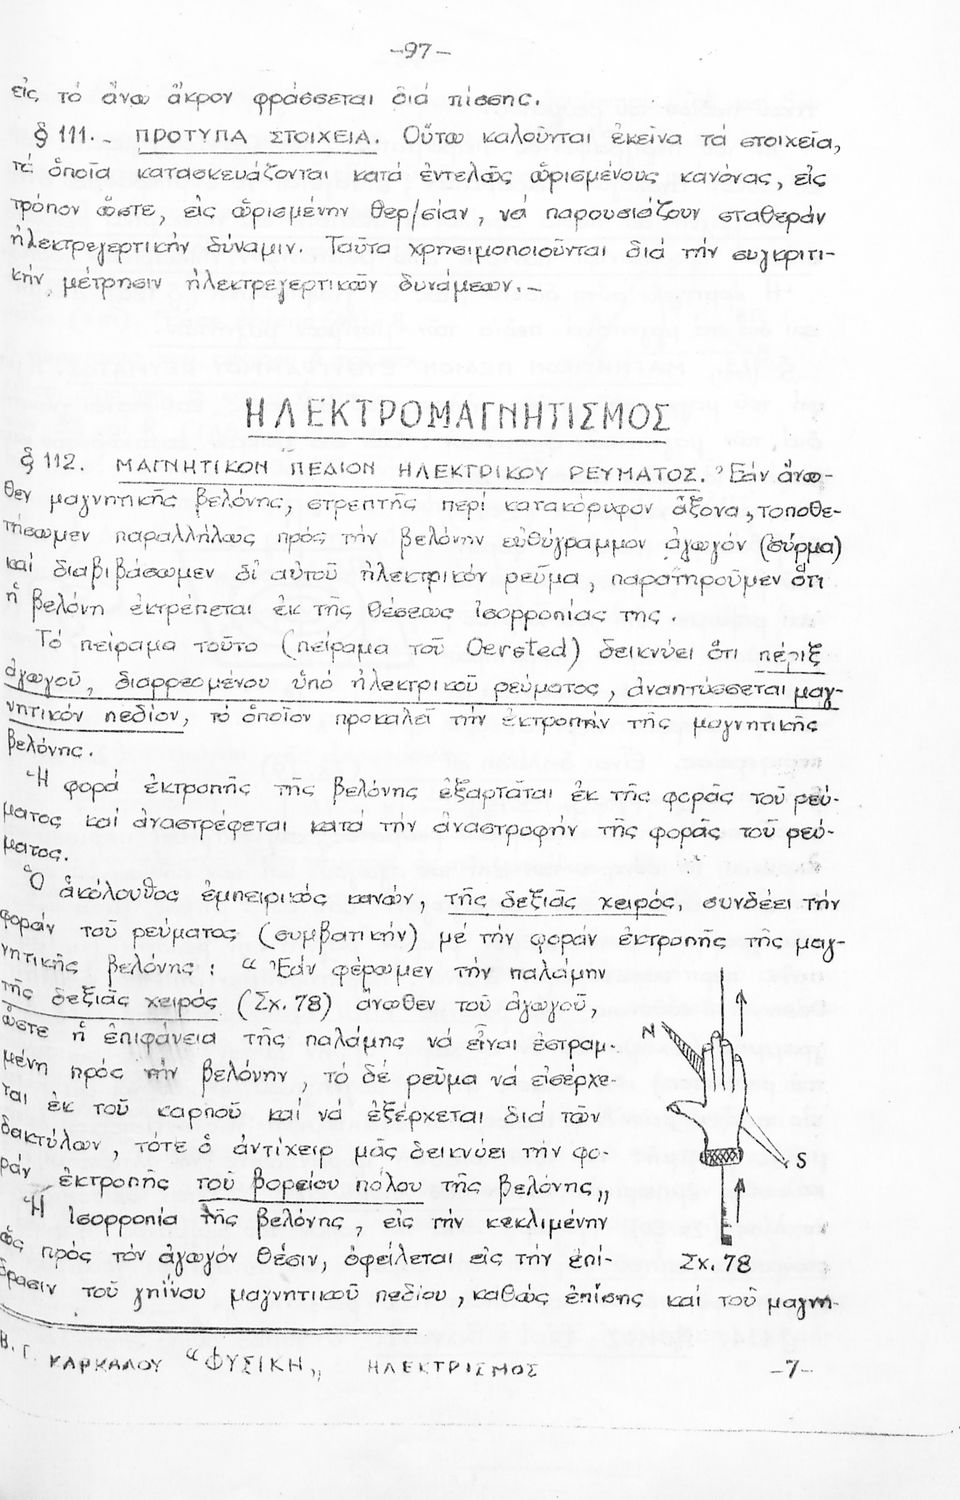 -97-
εἰς τό ἄνω ἄκρον φράσσεται διά πίσσης.
§ 111. - ΠΡΟΤΥΠΑ ΣΤΟΙΧΕΙΑ. Οὕτω καλοῦνται ἐκεῖνα τά στοιχεῖα,
τά ὁποῖα κατασκευάζονται κατά ἐντελῶς ὡρισμένους κανόνας, εἰς
τρόπον ὥστε, εἰς ὡρισμένην θερ/σίαν, νά παρουσιάζουν σταθεράν
ἠλεκτρεγερτικήν δύναμιν. Ταῦτα χρησιμοποιοῦνται διά τήν συγκριτι-
κήν μέτρησιν ἠλεκτρεγερτικῶν δυνάμεων. -
ΗΛΕΚΤΡΟΜΑΓΝΗΤΙΣΜΟΣ
§ 112. ΜΑΓΝΗΤΙΚΟΝ ΠΕΔΙΟΝ ΗΛΕΚΤΡΙΚΟΥ ΡΕΥΜΑΤΟΣ. Ἐάν ἄνω-
θεν μαγνητικῆς βελόνης, στρεπτῆς περί κατακόρυφον ἄξονα, τοποθε-
τήσωμεν παραλλήλως πρός τήν βελόνην εὐθύγραμμον ἀγωγόν (σύρμα)
καί διαβιβάσωμεν δι' αὐτοῦ ἠλεκτρικόν ρεῦμα, παρατηροῦμεν ὅτι
ἡ βελόνη ἐκτρέπεται ἐκ τῆς θέσεως ἰσορροπίας της.
Τό πείραμα τοῦτο (πείραμα τοῦ Oersted) δεικνύει ὅτι πέριξ
ἀγωγοῦ, διαρρεομένου ὑπό ἠλεκτρικοῦ ρεύματος, ἀναπτύσσεται μαγ-
νητικόν πεδίον, τό ὁποῖον προκαλεῖ τήν ἐκτροπήν τῆς μαγνητικῆς
βελόνης.
Ἡ φορά ἐκτροπῆς τῆς βελόνης ἐξαρτᾶται ἐκ τῆς φορᾶς τοῦ ρεύ-
ματος καί ἀναστρέφεται κατά τήν ἀναστροφήν τῆς φορᾶς τοῦ ρεύ-
ματος.
Ὁ ἀκόλουθος ἐμπειρικός κανών, τῆς δεξιᾶς χειρός, συνδέει τήν
φοράν τοῦ ρεύματος (συμβατικήν) μέ τήν φοράν ἐκτροπῆς τῆς μαγ-
νητικῆς βελόνης: “Ἐάν φέρωμεν τήν παλάμην
τῆς δεξιᾶς χειρός (Σχ. 78) ἄνωθεν τοῦ ἀγωγοῦ,
ὥστε ἡ ἐπιφάνεια τῆς παλάμης νά εἶναι ἐστραμ-
μένη πρός τήν βελόνην, τό δέ ρεῦμα νά εἰσέρχε-
ται ἐκ τοῦ καρποῦ καί νά ἐξέρχεται διά τῶν
δακτύλων, τότε ὁ ἀντίχειρ μᾶς δεικνύει τήν φο-
ράν ἐκτροπῆς τοῦ βορείου πόλου τῆς βελόνης„
Ἡ ἰσορροπία τῆς βελόνης, εἰς τήν κεκλιμένην
ὡς πρός τόν ἀγωγόν θέσιν, ὀφείλεται εἰς τήν ἐπί-
δρασιν τοῦ γηΐνου μαγνητικοῦ πεδίου, καθώς ἐπίσης καί τοῦ μαγνη-
N
S
Σχ. 78
Β. Γ. ΚΑΡΚΑΛΟΥ “ΦΥΣΙΚΗ„ ΗΛΕΚΤΡΙΣΜΟΣ -7-